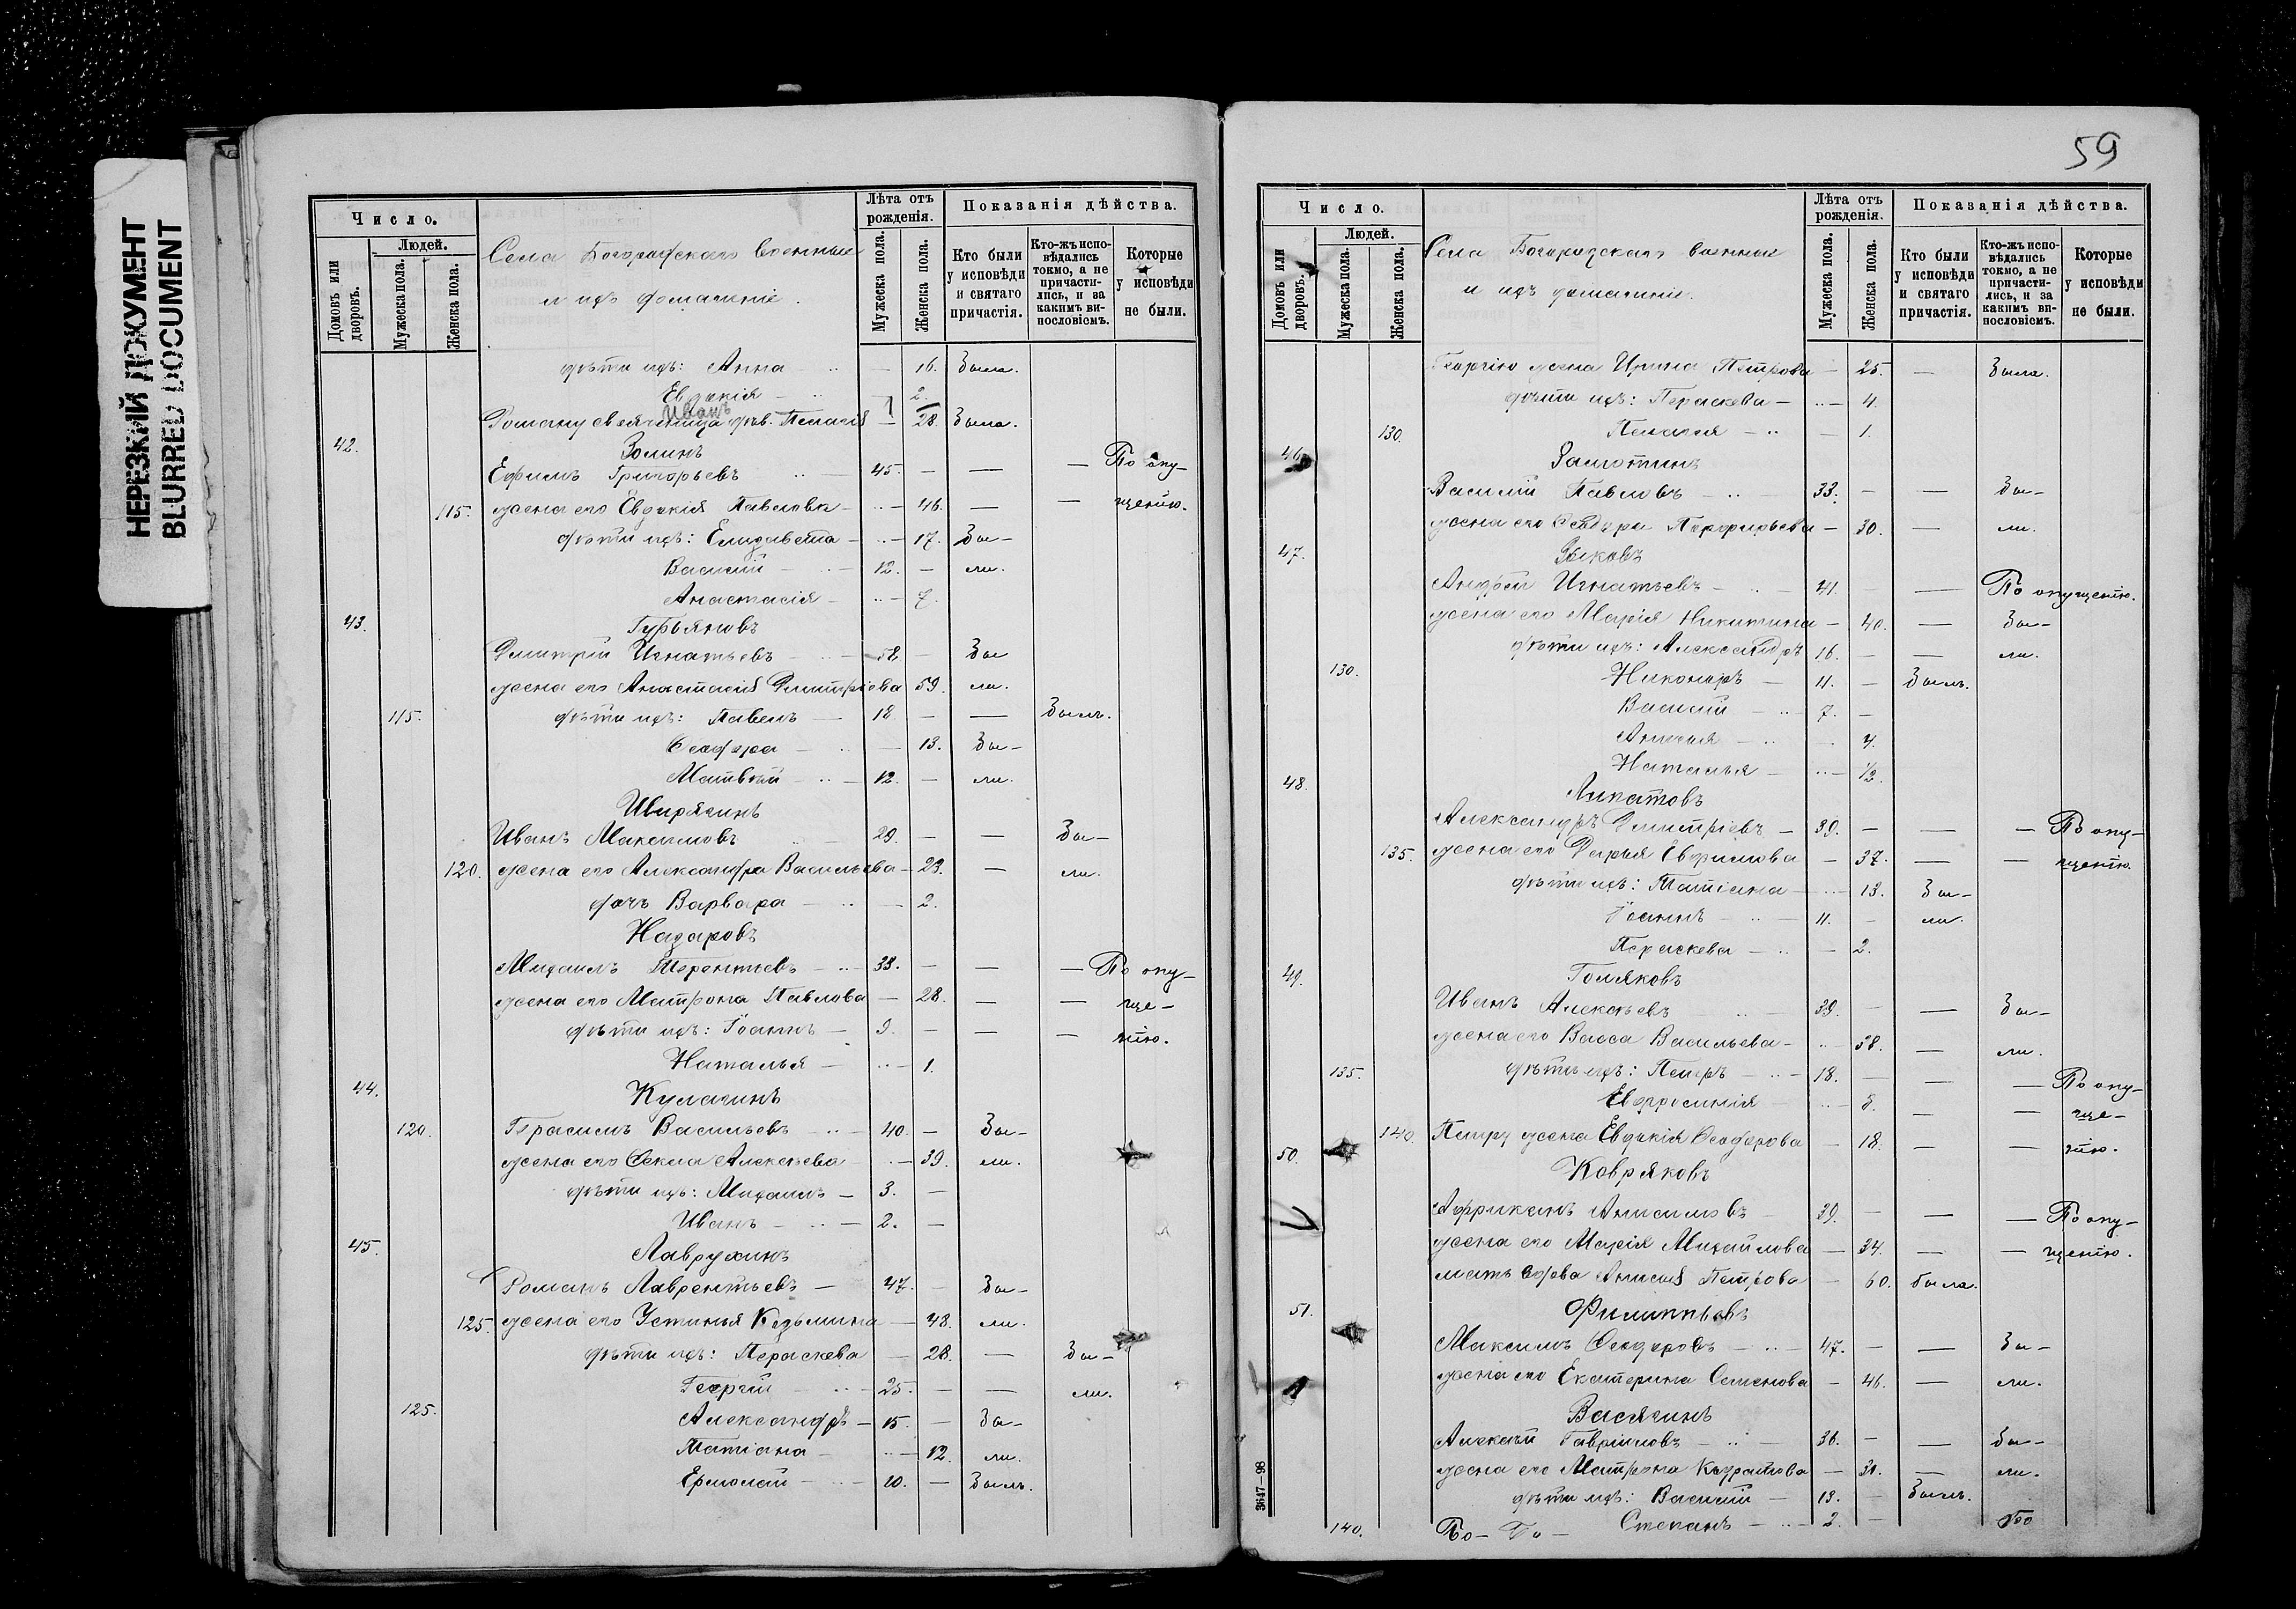 НЕРЕЗКИЙ ДОКУМЕНТ
BLURRED DOCUMENT
Число.
Людей.
Домовъ или дворовъ.
Мужеска пола.
Женска пола.
Села Богородскаго военные
и ихъ домашніе.
Лѣта отъ рожденія.
Мужеска пола.
Женска пола.
Показанія дѣйства.
Кто были у исповѣди и святаго причастія.
Кто-жъ исповѣдались токмо, а не причастились, и за какимъ винословіемъ.
Которые у исповѣди не были.
дѣти ихъ: Анна — 16. Была.
Евдокія — 2.
Иванъ 1
Роману свояченица дѣв. Пелагія — 28. Была.
42. Золинъ
Ефимъ Григорьевъ 45. — — — По опу-
115. жена его Евдокія Павлова — 46. — — щенію.
дѣти ихъ: Елизавета — 17. Бы-
Василій — 12. — ли.
Анастасія — 7.
43. Гурьяновъ
Дмитрій Игнатьевъ — 58 — Бы
жена его Анастасія Дмитріева 59. ли.
115. дѣти ихъ: Павелъ — 18 — — Былъ.
Ѳеодора — 13. Бы-
Матвѣй — 12. — ли.
Ивирягинъ
Иванъ Максимовъ 29. — — Бы-
120. жена его Александра Васильева — 28. — ли.
дочь Варвара — 2.
Назаровъ
Михаилъ Терентьевъ — 33. — — — По опу-
жена его Матрона Павлова — 28. — — ще-
дѣти ихъ: Іоаннъ — 9. — — — нію.
Наталья — 1.
44. Кулагинъ
120. Герасимъ Васильевъ — 40. — Бы-
жена его Ѳекла Алексѣева — 39. ли.
дѣти ихъ: Михаилъ — 3. —
Иванъ — 2. —
45. Лаврухинъ
Романъ Лаврентьевъ — 47. — Бы-
125. жена его Устинья Кузьмина — 48. ли.
дѣти ихъ: Параскева — 28. — Бы-
Георгій — 25. — — ли.
125. Александръ — 15. — Бы-
Татіана — 12. ли.
Ермолай — 10. — Былъ.
59
Число.
Людей.
Домовъ или дворовъ.
Мужеска пола.
Женска пола.
Села Богородскаго военные
и ихъ домашніе.
Лѣта отъ рожденія.
Мужеска пола.
Женска пола.
Показанія дѣйства.
Кто были у исповѣди и святаго причастія.
Кто-жъ исповѣдались токмо, а не причастились, и за какимъ винословіемъ.
Которые у исповѣди не были.
Георгію жена Ирина Петрова — 25. — Была.
дѣти ихъ: Параскева — 4.
130. Пелагея — 1.
46. Замотинъ
Василій Павловъ — 33. — — Бы-
жена его Порфирьева — 30. — ли.
47. Зыковъ
Андрей Игнатьевъ — 41. — — По опущенію.
жена его Марія Никитина — 40. — Бы-
дѣти ихъ: Александръ 16. — — ли.
130. Никоноръ — 11. — Былъ.
Василій — 7. —
Анисія — 4.
Наталья — 1/2
48. Липатовъ
Александръ Дмитріевъ — 39. — — — По опу-
135. жена его Дарья Евфимова — 37. — — щенію.
дѣти ихъ: Татіана — 13. Бы-
Іоаннъ — 11. — ли.
Параскева — 2.
49. Голяковъ
Иванъ Алексѣевъ 39. — — Бы-
жена его Васса Васильева — 38. — ли.
135. дѣти ихъ: Петръ — 18. — — — По опу-
Евфросинія — 8. — — ще-
140. Петру жена Евдокія Ѳеодорова — 18. — — нію.
50. Ковряковъ
Африканъ Анисимовъ 39. — — — По опу-
жена его Марія Михайлова — 34. — — щенію.
мать вдова Анисія Петрова — 60. была.
51. Филиппьевъ
Максимъ Ѳеодоровъ — 47. — — Бы-
жена его Екатерина Семенова — 46. — ли.
Васягинъ
Алексѣй Гавріиловъ — 36. — — Бы-
жена его Матрона — 31. — ли.
дѣти ихъ: Василій — 13. — Былъ.
140. Степанъ — 2. —
3647—98